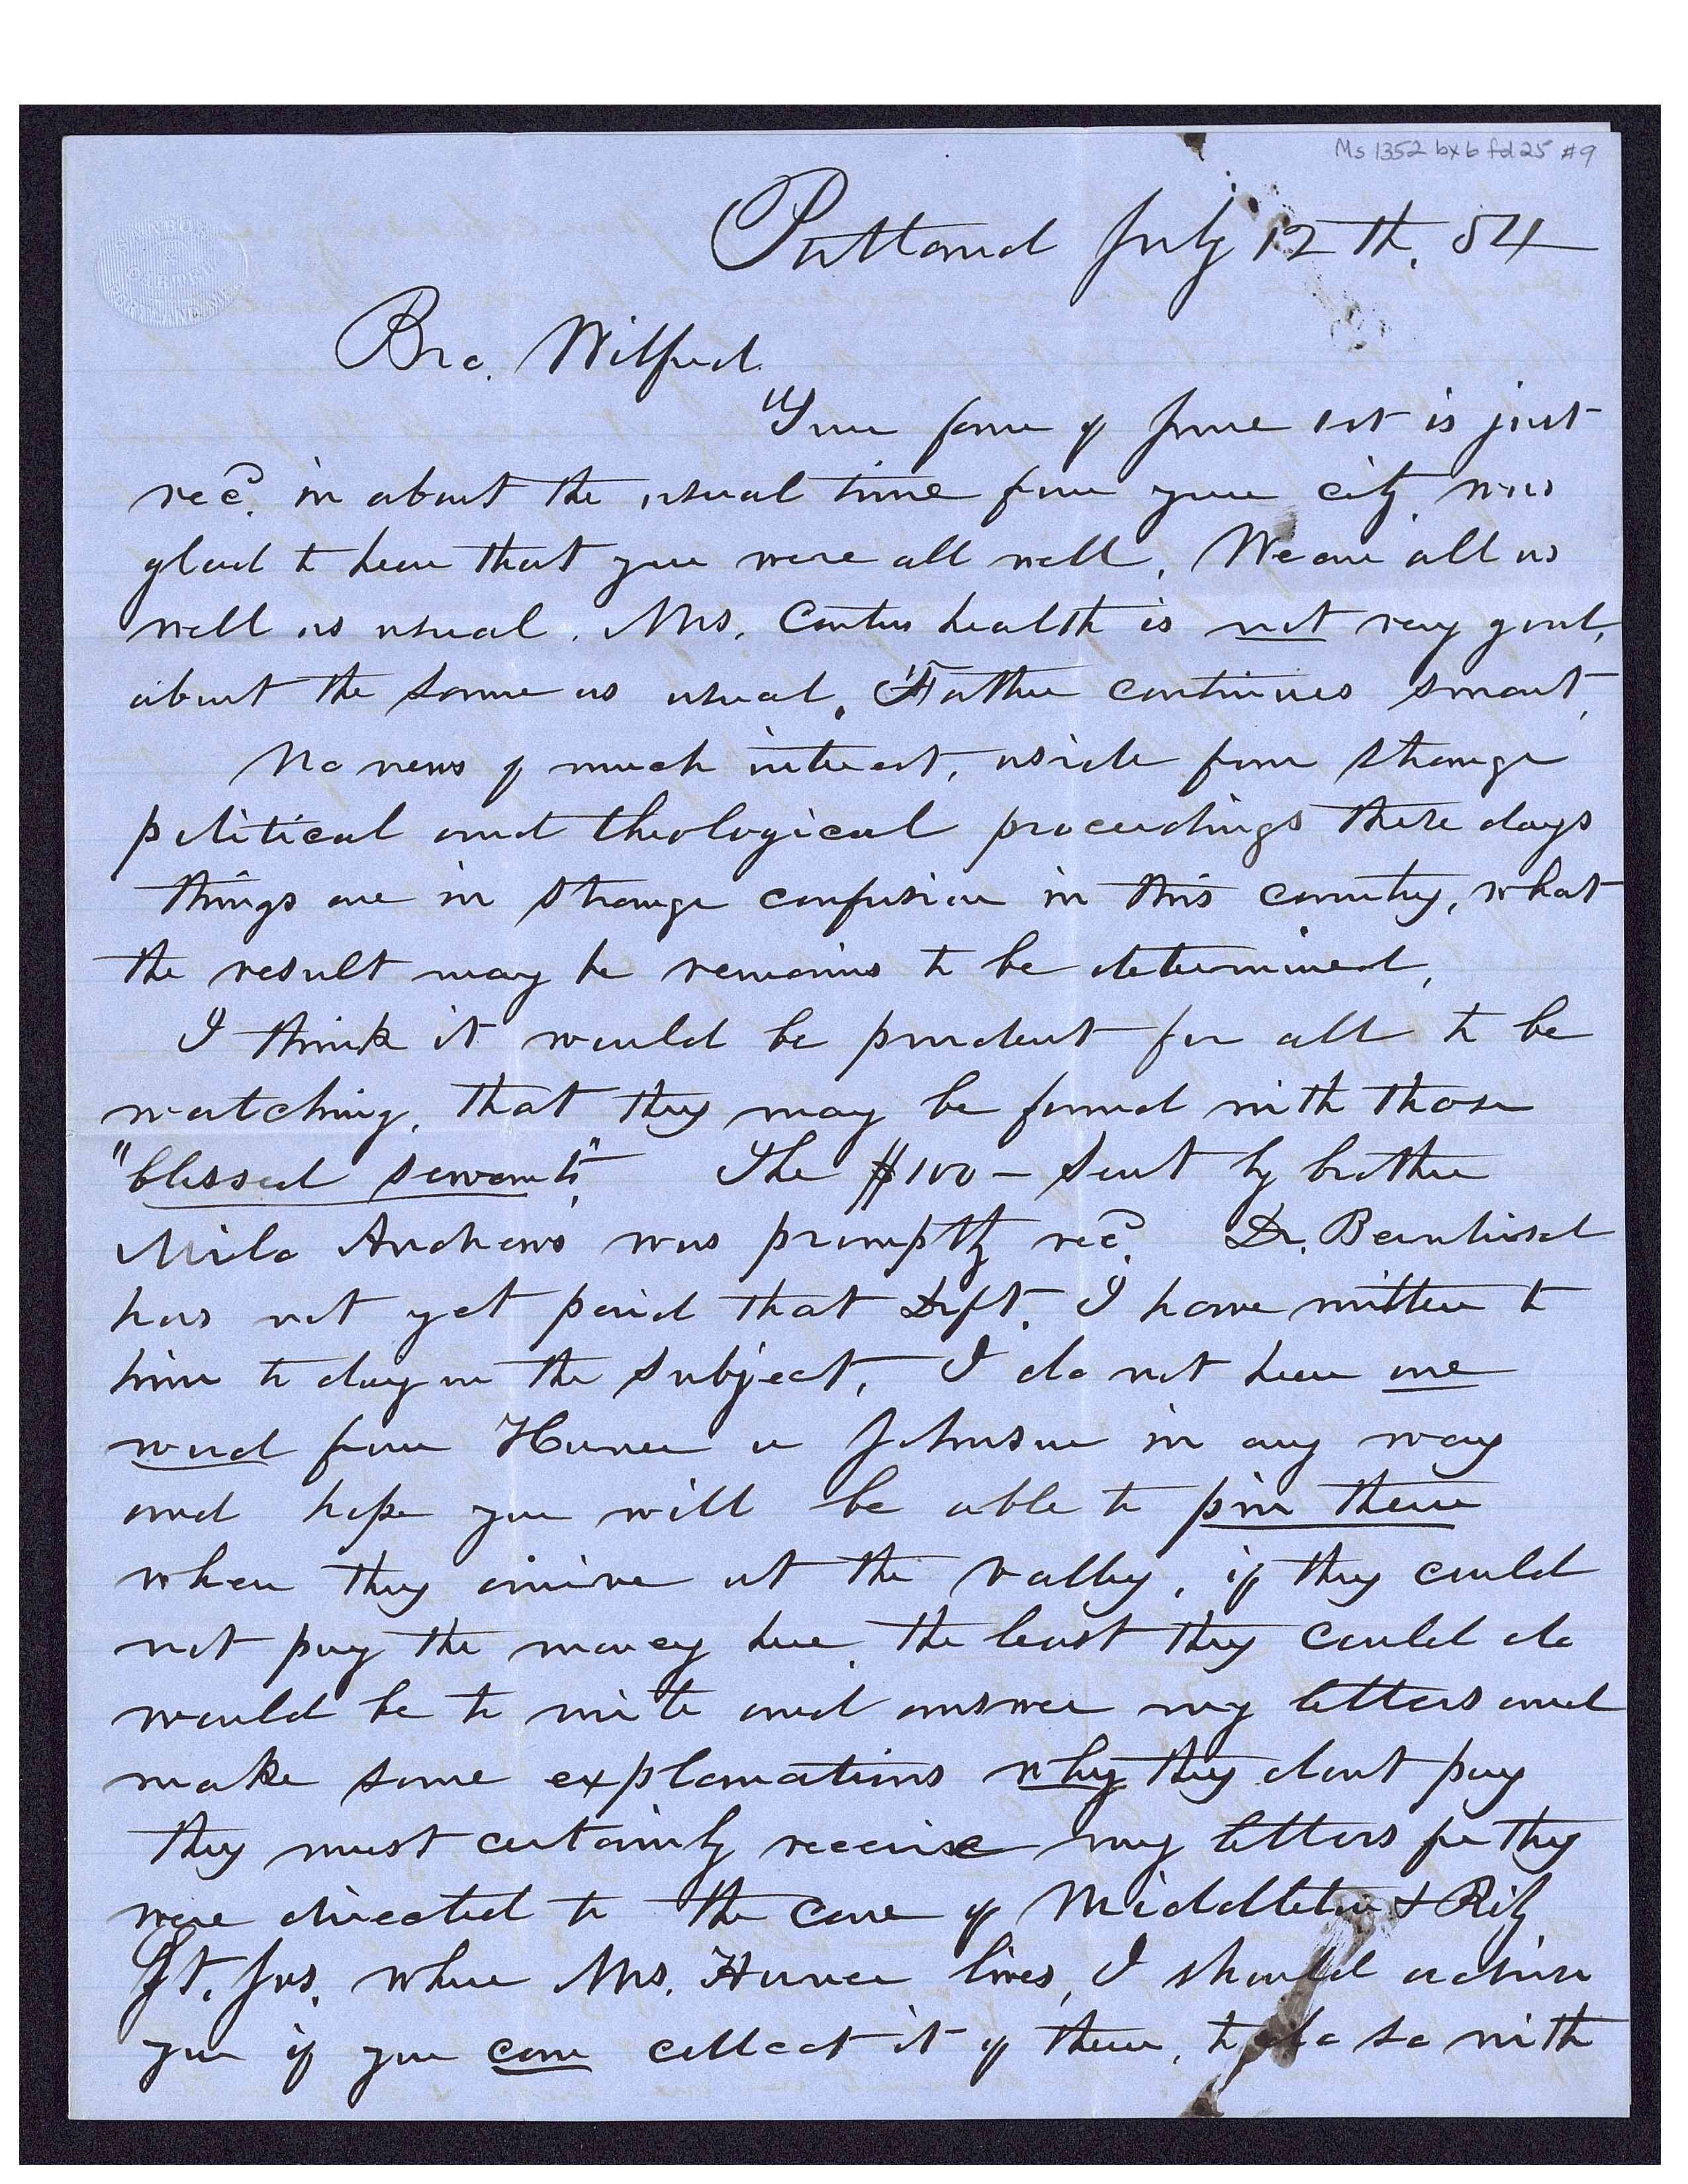 Ms 1352 bx 6 fd 25 #9
Portland July 12th, 54
SANBORN & CARTER PORTLAND ME
Bro. Wilford
Your favor of June 1st is just
rec^d. in about the usual time from your city was
glad to hear that you were all well. We are all as
well as usual. Mrs. Carters health is not very good,
about the same as usual. Father continues smart,
No news of much interest, aside from strange
political and theological proceedings these days
things are in strange confusion in this country, what
the result may be remains to be determined,
I think it would be prudent for all to be
watching, that they may be found with those
"blessed servants". The $100- sent by brother
Milo Andrews was promptly rec^d. Dr. Bernhisel
has not yet paid that Dft. I have written to
him to day on the subject, I do not hear one
word from Hunter or Johnson in any way
and hope you will be able to pin them
when they arrive at the valley, if they could
not pay the money due, the least they could do
would be to write and answer my letters and
make some explanations why they dont pay
they must certainly receive my letters for they
were directed to the care of Middleton & Rily
St. Jos. where Mrs. Hunter lives, I should advise
you if you can collect it of them, to do so with